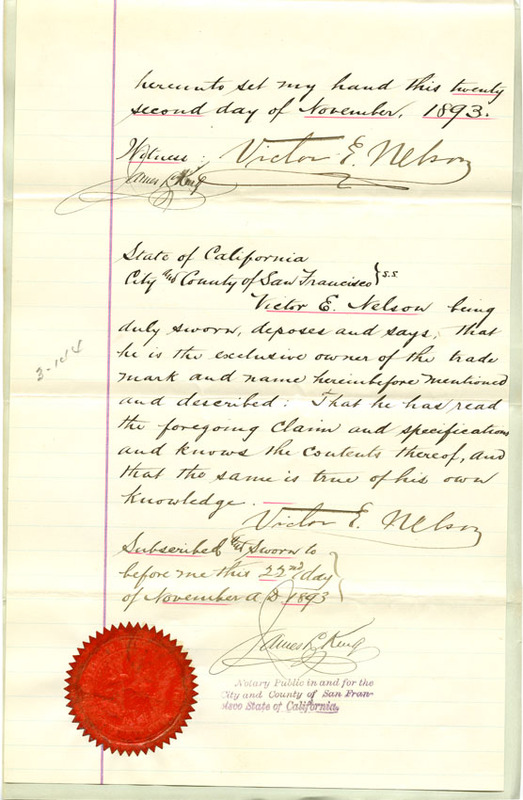 hereunto set my hand this twenty
second day of November, 1893.
Witness: Victor E. Nelson
James L. King
State of California
City and County of San Francisco } s.s
Victor E. Nelson being
duly sworn, deposes and says, that
he is the exclusive owner of the trade
mark and name hereinbefore mentioned
and described: That he has read
the foregoing Claim and specifications
and knows the Contents thereof, and
that the same is true of his own
knowledge.
Victor E. Nelson
Subscribed and Sworn to
before me this 22nd day
of November A D 1893
James L. King
Notary Public in and for the
City and County of San Fran-
cisco State of California.